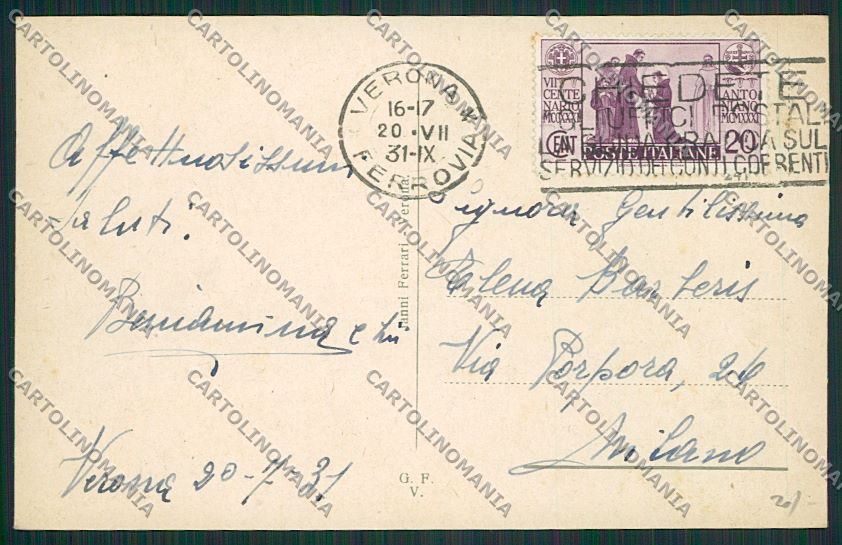 VERONA
16-17
20·VII
31-IX
FERROVIA
VII CENTENARIO
MCCXXXI
ANTONIANO
MCMXXXI
CENT 20
POSTE ITALIANE
CHIEDETE
UFFICI POSTALI
SUL
SERVIZIO DEI CONTI CORRENTI
Affettuosissimi
saluti.
Beniamina e
Verona 20-7-31
Ferrari Verona
G. F.
V.
Signora Gentilissima
Elena Barberis
Via Porpora, 26
Milano
CARTOLINOMANIA